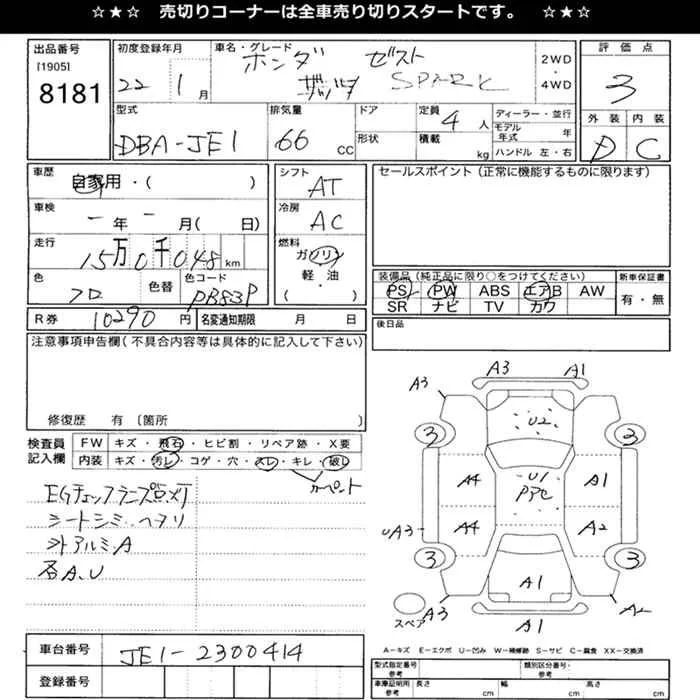 ☆★☆ 売切りコーナーは全車売り切りスタートです。 ☆★☆
出品番号
[1905]
8181
初度登録年月
22 1月
車名・グレード
ホンダ ゼスト
SPARK
2WD
・
4WD
評価点
3
型式
DBA-JE1
排気量
66 CC
ドア
形状
定員
4人
積載
kg
ディーラー・並行
モデル年式 年
ハンドル 左・右
外装 内装
D C
車歴
自家用・( )
シフト
AT
セールスポイント(正常に機能するものに限ります)
車検
一年一月( 日)
冷房
AC
走行
15万0千048km
燃料
ガソリン
軽・油
( )
色
クロ
色替
色コード
PB83P
装備品(純正品に限り○をつけてください)
PS PW ABS エアB AW
SR ナビ TV カワ
新車保証書
有・無
R券 10290円
名変通知期限 月 日
後日品
注意事項申告欄(不具合内容等は具体的に記入して下さい)
修復歴 有〔箇所 〕
検査員記入欄
FW キズ・飛石・ヒビ割・リペア跡・X要
内装 キズ・汚レ・コゲ・穴・スレ・キレ・破レ
カーペント
EGチェックランプ点灯
シートシミ、ヘタリ
外アルミA
各A.U
A3 A1
A3
U2
3 3
A4 U1 A1
Pアセ
UA3 A4 A2
3 3
A1
スペア A3 A2
A1
車台番号 JE1-2300414
登録番号
A−キズ E−エクボ U−凹み W−補修跡 S−サビ C−腐食 XX−交換済
型式指定番号
参考
類別区分番号
参考
車庫証明用
参考
長さ cm 幅 cm 高さ cm